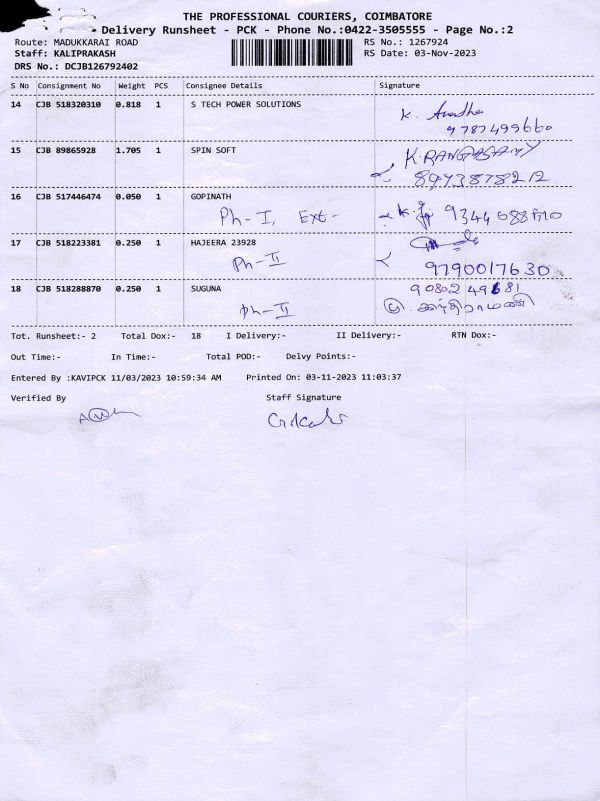 THE PROFESSIONAL COURIERS, COIMBATORE
Delivery Runsheet - PCK - Phone No.:0422-3505555 - Page No.:2
Route: MADUKKARAI ROAD RS No.: 1267924
Staff: KALIPRAKASH RS Date: 03-Nov-2023
DRS No.: DCJB126792402
S No Consignment No Weight PCS Consignee Details Signature
14 CJB 518320310 0.818 1 S TECH POWER SOLUTIONS K.
9787499660
15 CJB 89865928 1.705 1 SPIN SOFT K.RANGASAMY
8973878212
16 CJB 517446474 0.050 1 GOPINATH
Ph-I, Ext-
17 CJB 518223381 0.250 1 HAJEERA 23928
Ph-II 9790017630
18 CJB 518288870 0.250 1 SUGUNA
Ph-II
Tot. Runsheet:- 2 Total Dox:- 18 I Delivery:- II Delivery:- RTN Dox:-
Out Time:- In Time:- Total POD:- Delvy Points:-
Entered By :KAVIPCK 11/03/2023 10:59:34 AM Printed On: 03-11-2023 11:03:37
Verified By Staff Signature